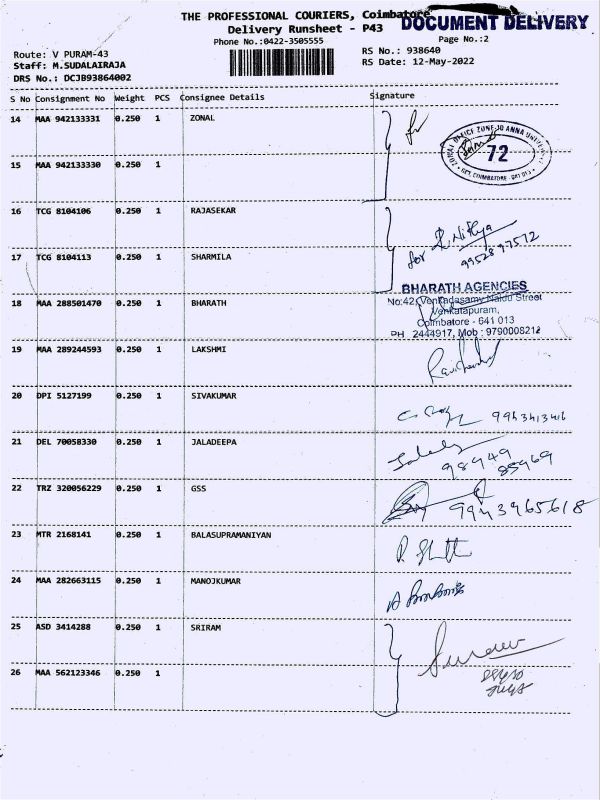 THE PROFESSIONAL COURIERS, Coimbatore
DOCUMENT DELIVERY
Delivery Runsheet - P43
Page No.:2
Phone No.:0422-3505555
Route: V PURAM-43
RS No.: 938640
Staff: M.SUDALAIRAJA
RS Date: 12-May-2022
DRS No.: DCJB93864002
S No Consignment No Weight PCS Consignee Details Signature
14 MAA 942133331 0.250 1 ZONAL
72
15 MAA 942133330 0.250 1
16 TCG 8104106 0.250 1 RAJASEKAR
for R. Nithya
9952897572
17 TCG 8104113 0.250 1 SHARMILA
BHARATH AGENCIES
No:42, Venkadasamy Naidu Street
18 MAA 288501470 0.250 1 BHARATH
Venkatapuram,
Coimbatore - 641 013
PH 2444917, Mob : 9790008212
19 MAA 289244593 0.250 1 LAKSHMI
20 DPI 5127199 0.250 1 SIVAKUMAR
21 DEL 70058330 0.250 1 JALADEEPA
98949
85969
22 TRZ 320056229 0.250 1 GSS
9943965618
23 MTR 2168141 0.250 1 BALASUPRAMANIYAN
24 MAA 282663115 0.250 1 MANOJKUMAR
25 ASD 3414288 0.250 1 SRIRAM
26 MAA 562123346 0.250 1